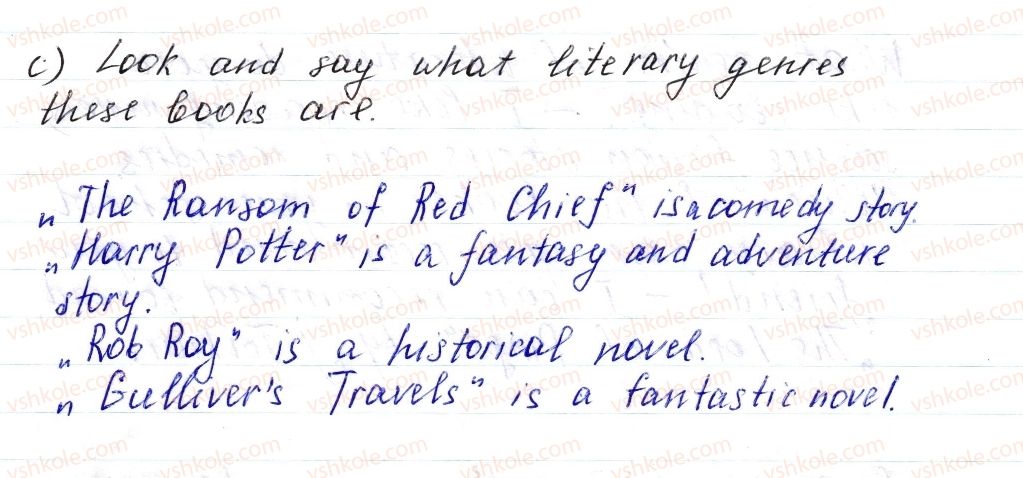 c) Look and say what literary genres
these books are.
„The Ransom of Red Chief" is a comedy story.
„Harry Potter" is a fantasy and adventure
story.
„Rob Roy" is a historical novel.
„Gulliver's Travels" is a fantastic novel.
vshkole.com